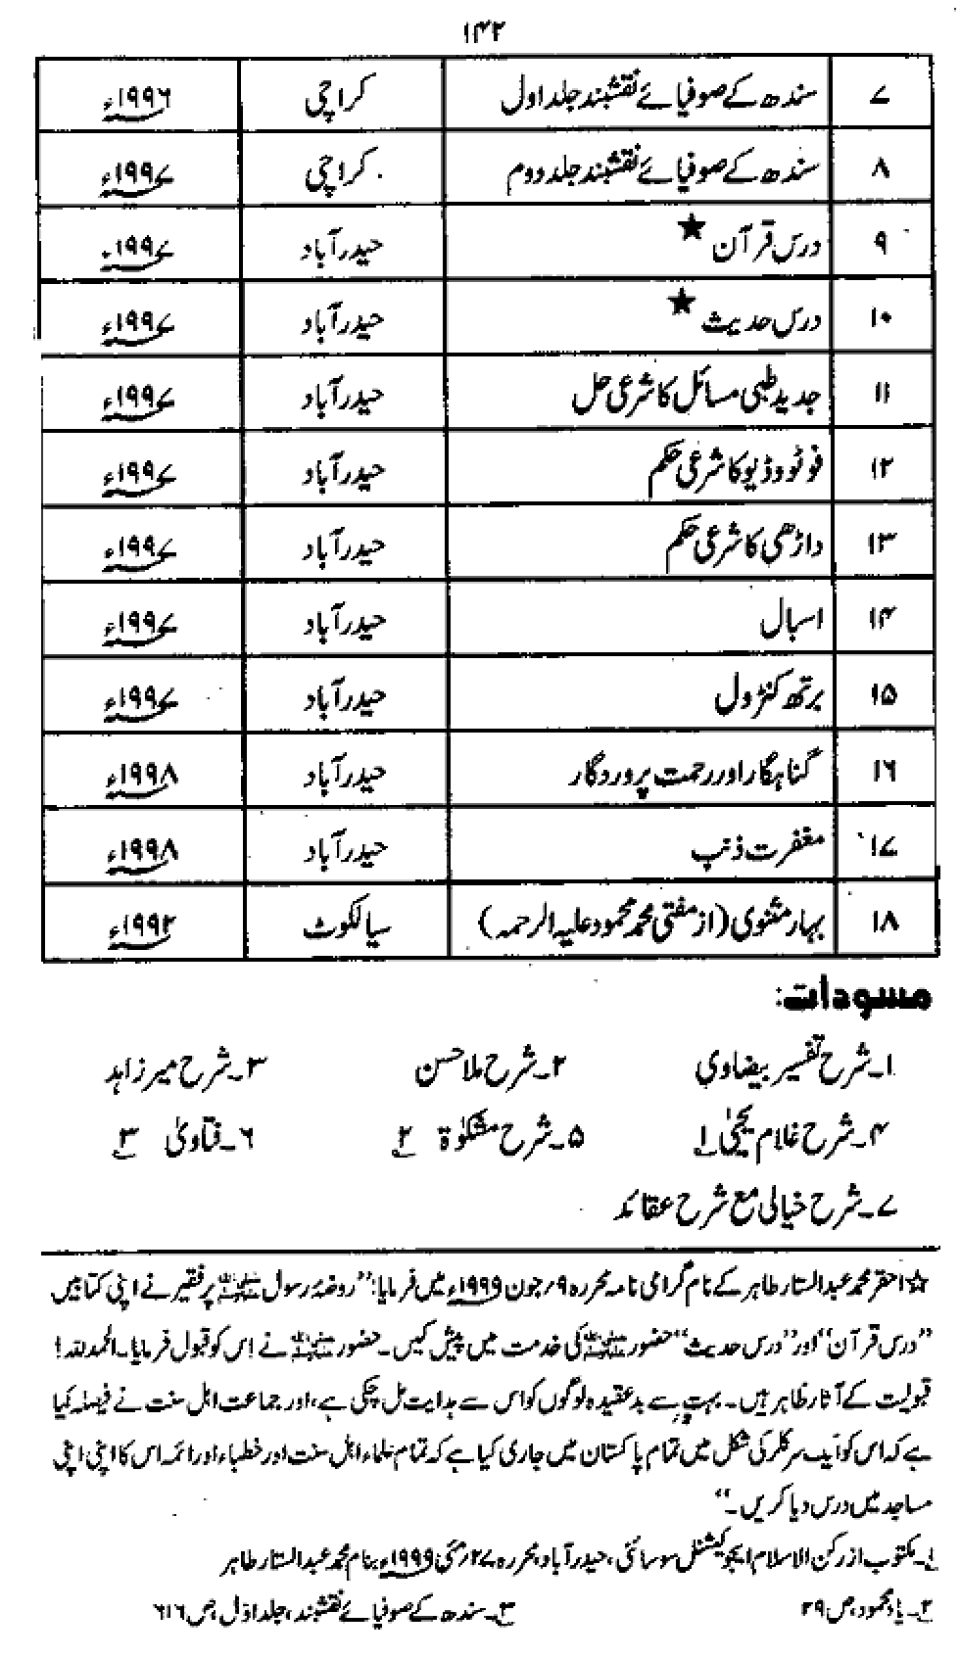 ۱۴۲
۷ سندھ کے صوفیائے نقشبند جلد اول کراچی ۱۹۹۶ء
۸ سندھ کے صوفیائے نقشبند جلد دوم کراچی ۱۹۹۷ء
۹ درس قرآن ★ حیدرآباد ۱۹۹۷ء
۱۰ درس حدیث ★ حیدرآباد ۱۹۹۷ء
۱۱ جدید طبی مسائل کا شرعی حل حیدرآباد ۱۹۹۷ء
۱۲ فوٹو وڈیو کا شرعی حکم حیدرآباد ۱۹۹۷ء
۱۳ داڑھی کا شرعی حکم حیدرآباد ۱۹۹۷ء
۱۴ اسبال حیدرآباد ۱۹۹۷ء
۱۵ برتھ کنٹرول حیدرآباد ۱۹۹۷ء
۱۶ گناہگار اور رحمت پروردگار حیدرآباد ۱۹۹۸ء
۱۷ مغفرت ذنب حیدرآباد ۱۹۹۸ء
۱۸ بہار مثنوی (از مفتی محمد محمود علیہ الرحمہ) سیالکوٹ ۱۹۹۲ء
مسودات:
۱۔ شرح تفسیر بیضاوی ۲۔ شرح ملا حسن ۳۔ شرح میر زاہد
۴۔ شرح غلام یحییٰ ۱؎ ۵۔ شرح مشکوٰۃ ۲؎ ۶۔ فتاویٰ ۳؎
۷۔ شرح خیالی مع شرح عقائد
☆ احقر محمد عبدالستار طاہر کے نام گرامی نامہ محررہ ۹؍جون ۱۹۹۹ء میں فرمایا: ’’روضۂ رسول ﷺ پر فقیر نے اپنی کتابیں
’’درس قرآن‘‘ اور ’’درس حدیث‘‘ حضور ﷺ کی خدمت میں پیش کیں۔ حضور ﷺ نے اس کو قبول فرمایا۔ الحمدللہ!
قبولیت کے آثار ظاہر ہیں۔ بہت سے بدعقیدہ لوگوں کو اس سے ہدایت مل چکی ہے، اور جماعت اہل سنت نے فیصلہ کیا
ہے کہ اس کو ایک سرکلر کی شکل میں تمام پاکستان میں جاری کیا ہے کہ تمام علماء اہل سنت اور خطباء اور ائمہ اس کا اپنی اپنی
مساجد میں درس دیا کریں۔‘‘
۱؎۔ مکتوب از رکن الاسلام ایجوکیشنل سوسائٹی، حیدرآباد، محررہ ۲۷؍مئی ۱۹۹۹ء بنام محمد عبدالستار طاہر
۲؎۔ یاد محمود، ص ۲۹ ۳؎۔ سندھ کے صوفیائے نقشبند، جلد اوّل، ص ۶۱۶